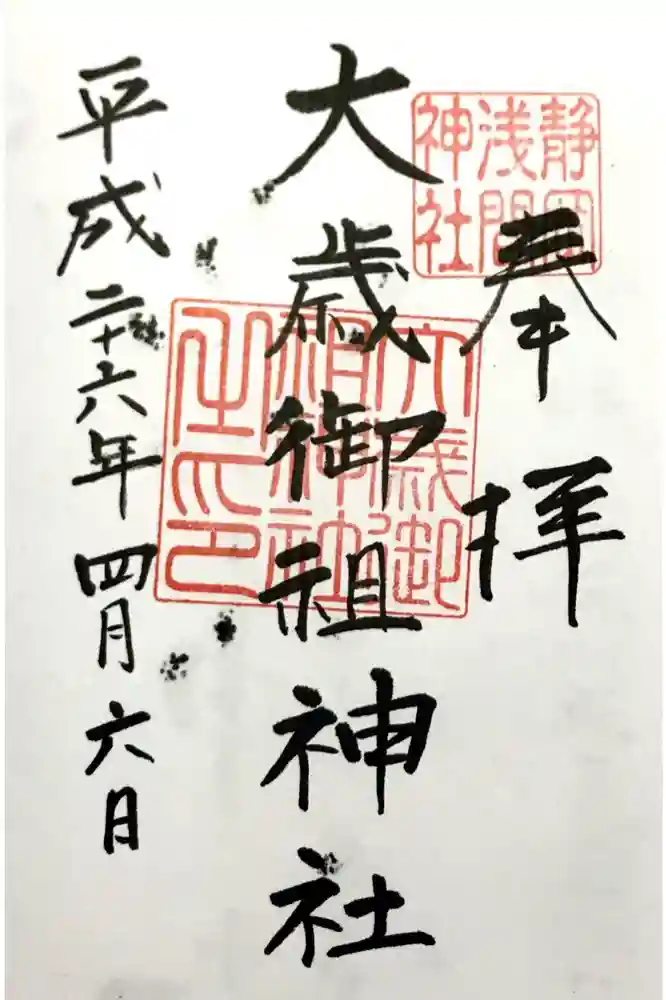 奉拝
静岡
浅間
神社
大歳御祖神社
大歳御
祖神社
之印
平成二十六年四月六日